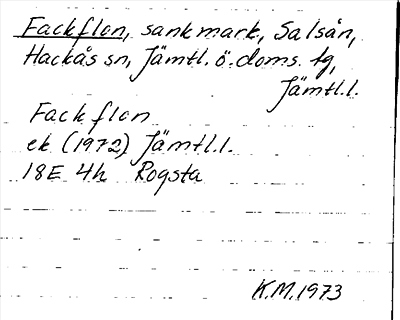 Fackflon, sankmark, Salsån,
Hackås sn, Jämtl. ö. doms. tg,
Jämtl.l.
Fackflon
ek (1972) Jämtl.l.
18E 4h Rogsta
K.M.1973